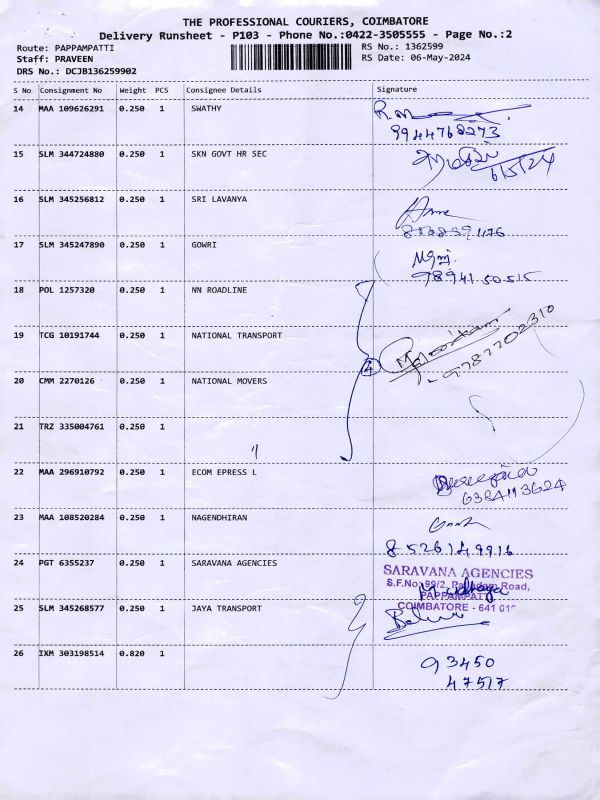 THE PROFESSIONAL COURIERS, COIMBATORE
Delivery Runsheet - P103 - Phone No.:0422-3505555 - Page No.:2
Route: PAPPAMPATTI RS No.: 1362599
Staff: PRAVEEN RS Date: 06-May-2024
DRS No.: DCJB136259902
S No Consignment No Weight PCS Consignee Details Signature
14 MAA 109626291 0.250 1 SWATHY
9944768273
15 SLM 344724880 0.250 1 SKN GOVT HR SEC
6/5/24
16 SLM 345256812 0.250 1 SRI LAVANYA
17 SLM 345247890 0.250 1 GOWRI
98941 50515
18 POL 1257320 0.250 1 NN ROADLINE
19 TCG 10191744 0.250 1 NATIONAL TRANSPORT
4
9787702310
20 CMM 2270126 0.250 1 NATIONAL MOVERS
21 TRZ 335004761 0.250 1
"
22 MAA 296910792 0.250 1 ECOM EPRESS L
6384113624
23 MAA 108520284 0.250 1 NAGENDHIRAN
8526149916
24 PGT 6355237 0.250 1 SARAVANA AGENCIES
SARAVANA AGENCIES
S.F.No: 99/2, Palladam Road,
PAPPAMPATTI
COIMBATORE - 641 016
25 SLM 345268577 0.250 1 JAYA TRANSPORT
26 IXM 303198514 0.820 1
93450
47517